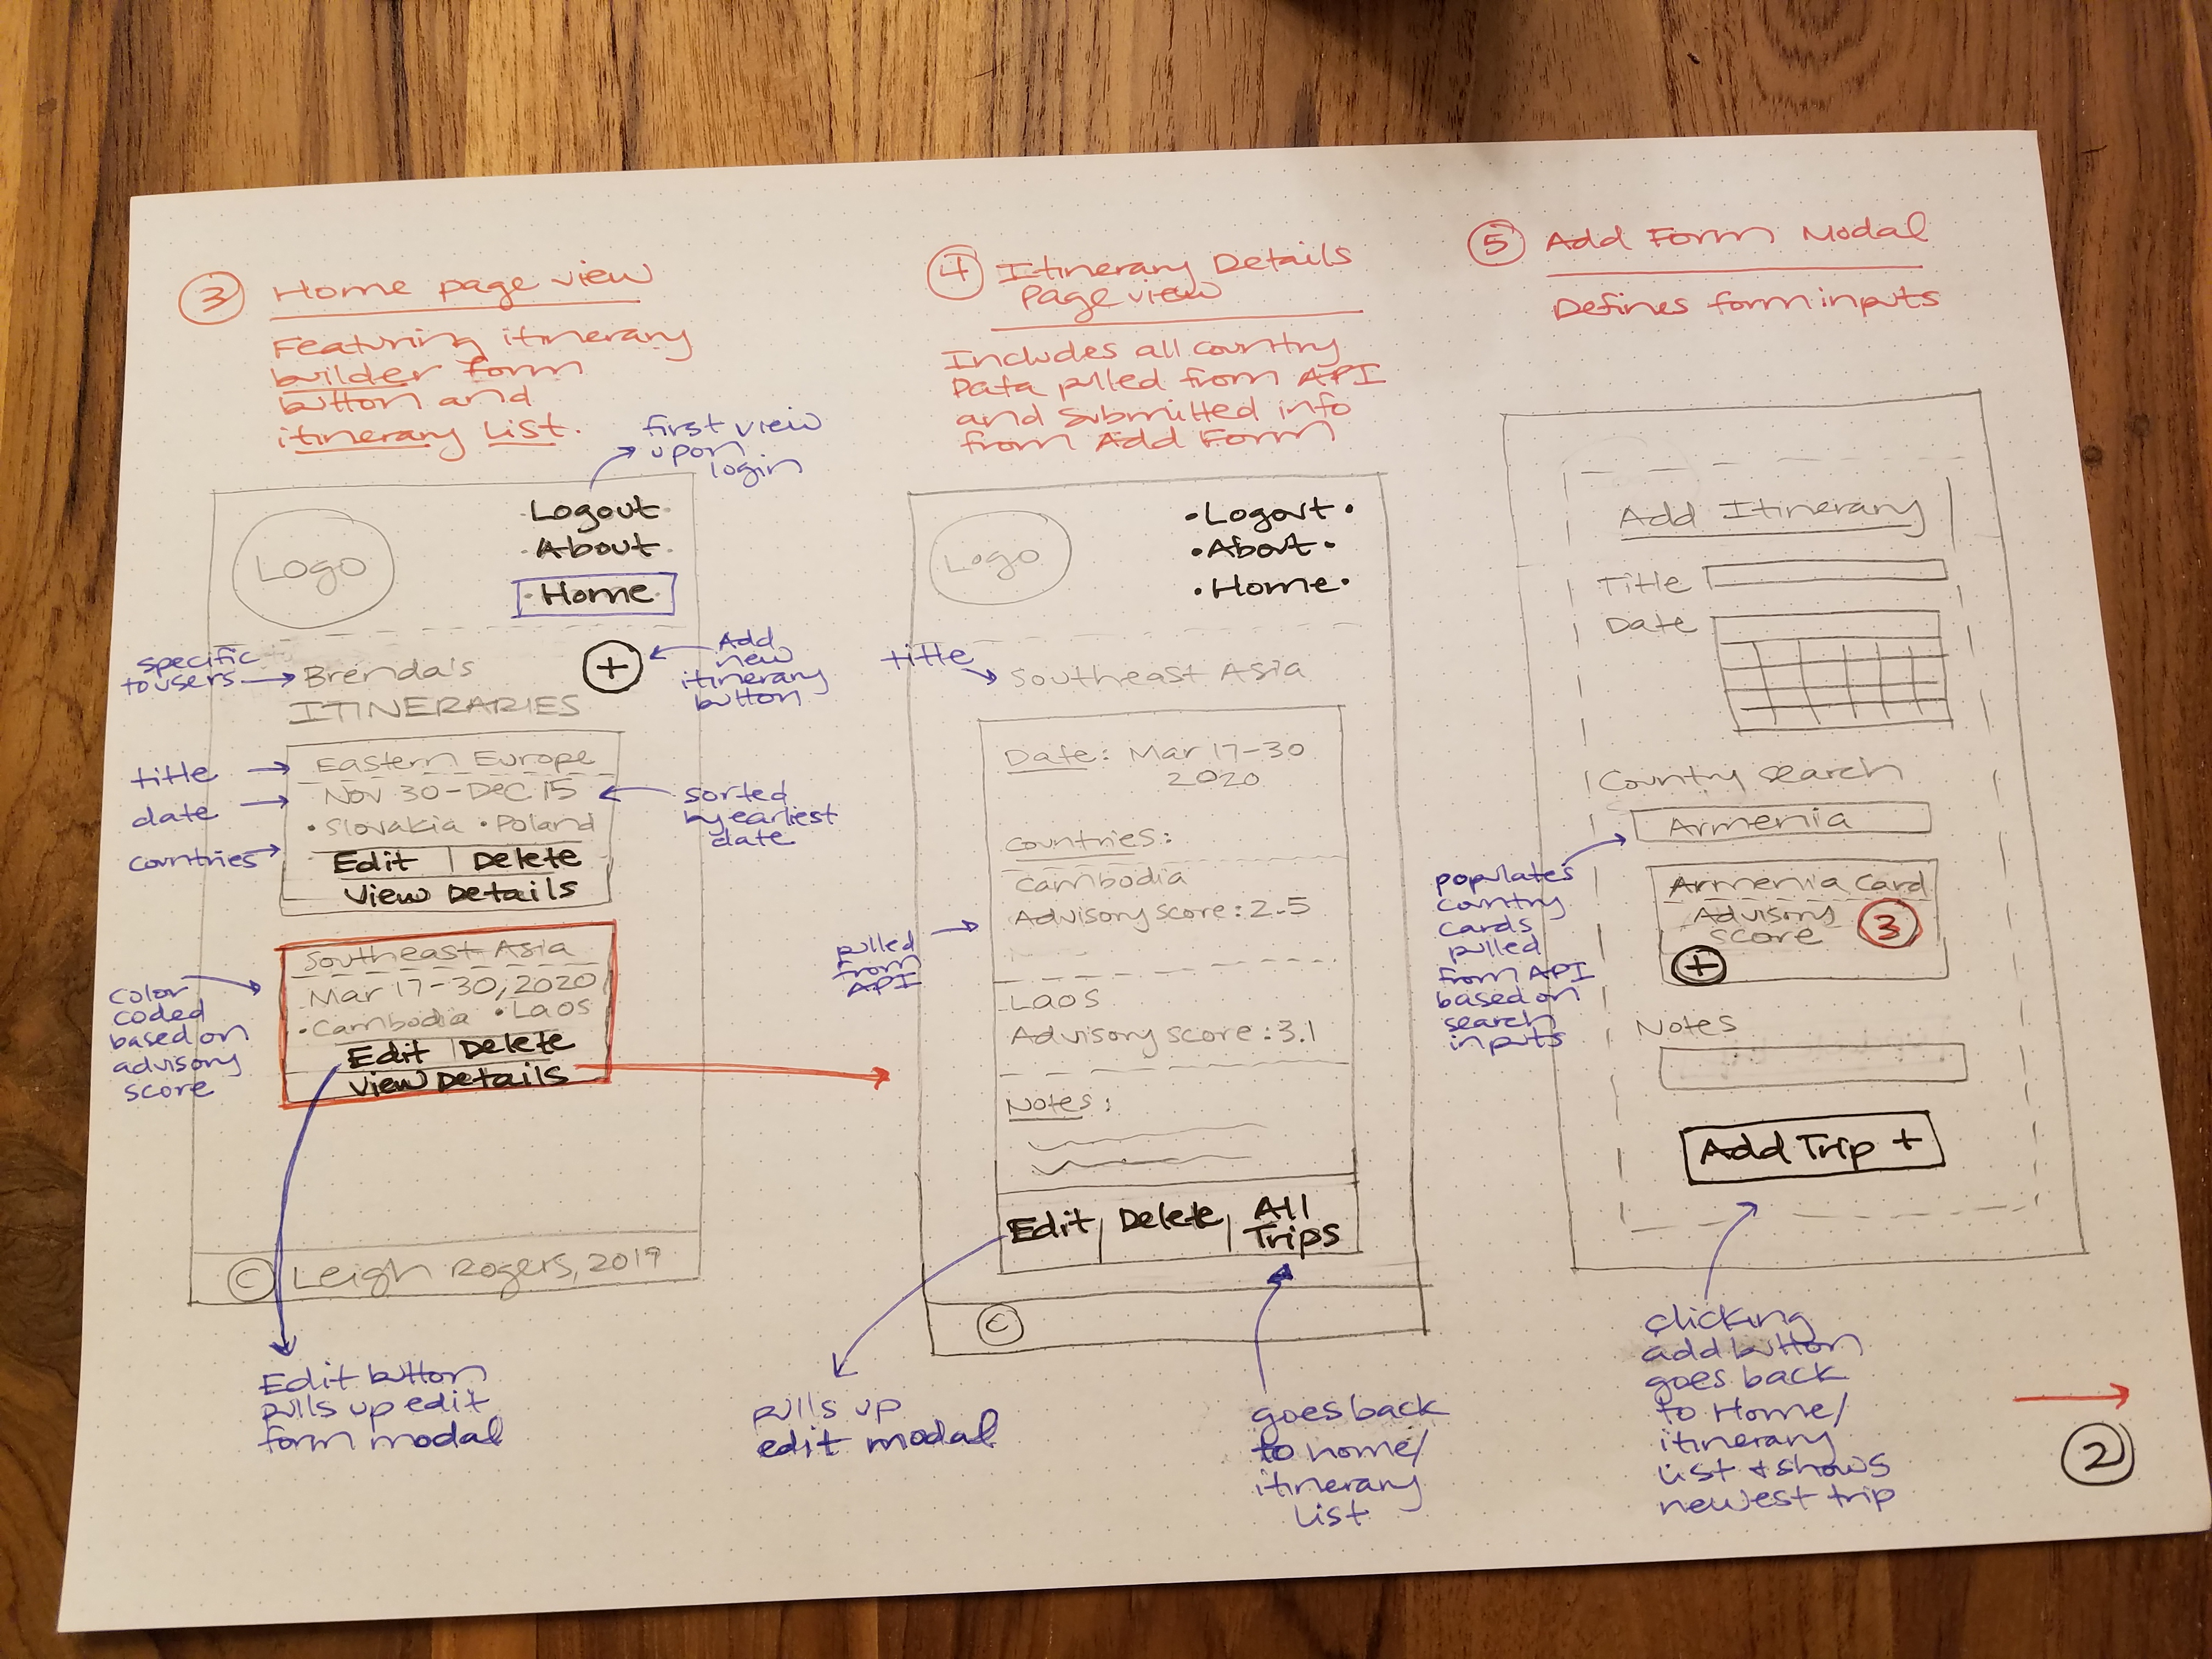 ③ Home page view
Featuring itinerary
builder form
button and
itinerary list.
first view
upon
login
Logo
·Logout·
·About·
·Home·
specific
to users
Brenda's
ITINERARIES
+
Add
new
itinerary
button
title
date
countries
Eastern Europe
Nov 30-Dec 15
·Slovakia ·Poland
Edit | Delete
View Details
sorted
by earliest
date
color
coded
based on
advisory
score
Southeast Asia
Mar 17-30, 2020
·Cambodia ·Laos
Edit | Delete
View Details
© Leigh Rogers, 2019
Edit button
pulls up edit
form modal
④ Itinerary Details
Page view
Includes all country
Data pulled from API
and submitted info
from Add Form
Logo
·Logout·
·About·
·Home·
title
Southeast Asia
Date: Mar 17-30
2020
Countries:
Cambodia
Advisory score: 2.5
pulled
from
API
Laos
Advisory score: 3.1
Notes:
Edit | Delete | All
Trips
©
pulls up
edit modal
goes back
to home/
itinerary
list
⑤ Add Form Modal
Defines form inputs
Add Itinerary
Title
Date
Country Search
Armenia
populates
country
cards
pulled
from API
based on
search
inputs
Armenia Card
Advisory
score
3
+
Notes
Add Trip +
clicking
add button
goes back
to Home/
itinerary
list + shows
newest trip
②